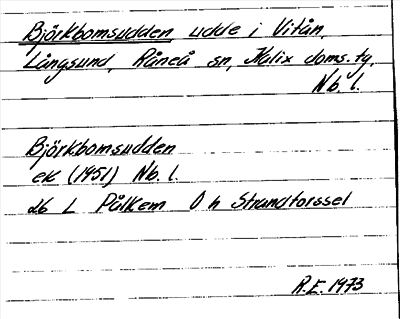 Björkbomsudden, udde i Vitån,
Långsund, Råneå sn, Kalix doms. tg,
Nb. l.
Björkbomsudden
ek (1951) Nb. l.
26 L Pålkem O h Strandtorssel
R.E. 1973